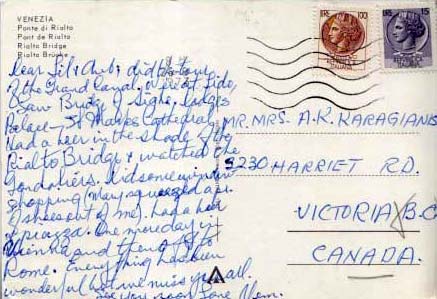 VENEZIA
Ponte di Rialto
Pont de Rialto
Rialto Bridge
Rialto Brücke
Dear Lil & Chub, did the tour
of the Grand Canal, west side,
Saw Bridge of Sighs, Dodges
Palace - St Marks Cathedral,
Had a beer in the shade of the
Rialto Bridge & watched the
Gondoliers. Did some window
shopping (Mary squeezed a pr.
of shoes out of me). had a beer
piazza. One more day in
Vienna and then off to
Rome. Everything has been
wonderful but we miss you all.
See you soon Love
LIRE 100
LIRE 15
MR. MRS. A.K. KARAGIANIS
3230 HARRIET RD.
VICTORIA B.C
CANADA.